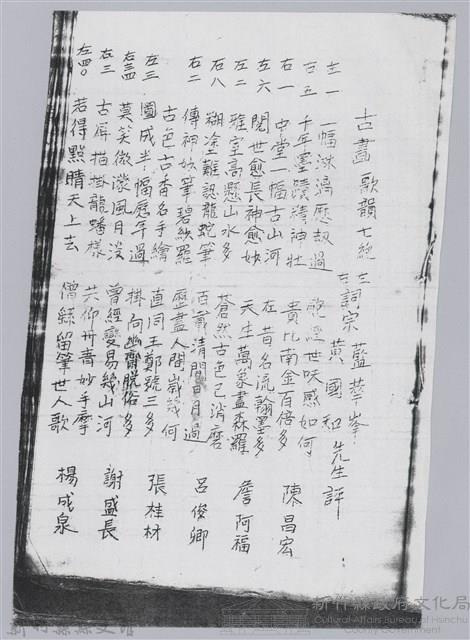 古畫 歌韻七絕 左詞宗 藍華峯
右 黃國和 先生評
左一 一幅淋漓歷劫過 飽經世味感如何
右五 千年墨蹟精神壯 貴比南金百倍多 陳昌宏
右一 中堂一幅古山河 在昔名流翰墨多
左六 閱世愈長神愈妙 天生萬象畫森羅 詹阿福
左二 雅室高懸山水多 蒼然古色已消磨
右八 糊塗難認龍蛇筆 百載清閒日月過 呂俊卿
右二 傳神妙筆碧紗羅 歷盡人間歲幾何
古色古香名手繪 直同王鄭號三多 張桂材
左三 圖成半幅歷年過 掛向幽齋脫俗多
右四 莫笑微濛風月沒 曾經變易幾山河 謝盛長
右三 古屏拍掛龍蟠樣 共仰丹青妙手摩
左四〇 若得點睛天上去 僧繇留筆世人歌 楊成泉
新竹縣縣史館
新竹縣政府文化局
Cultural Affairs Bureau of Hsinchu
County Government